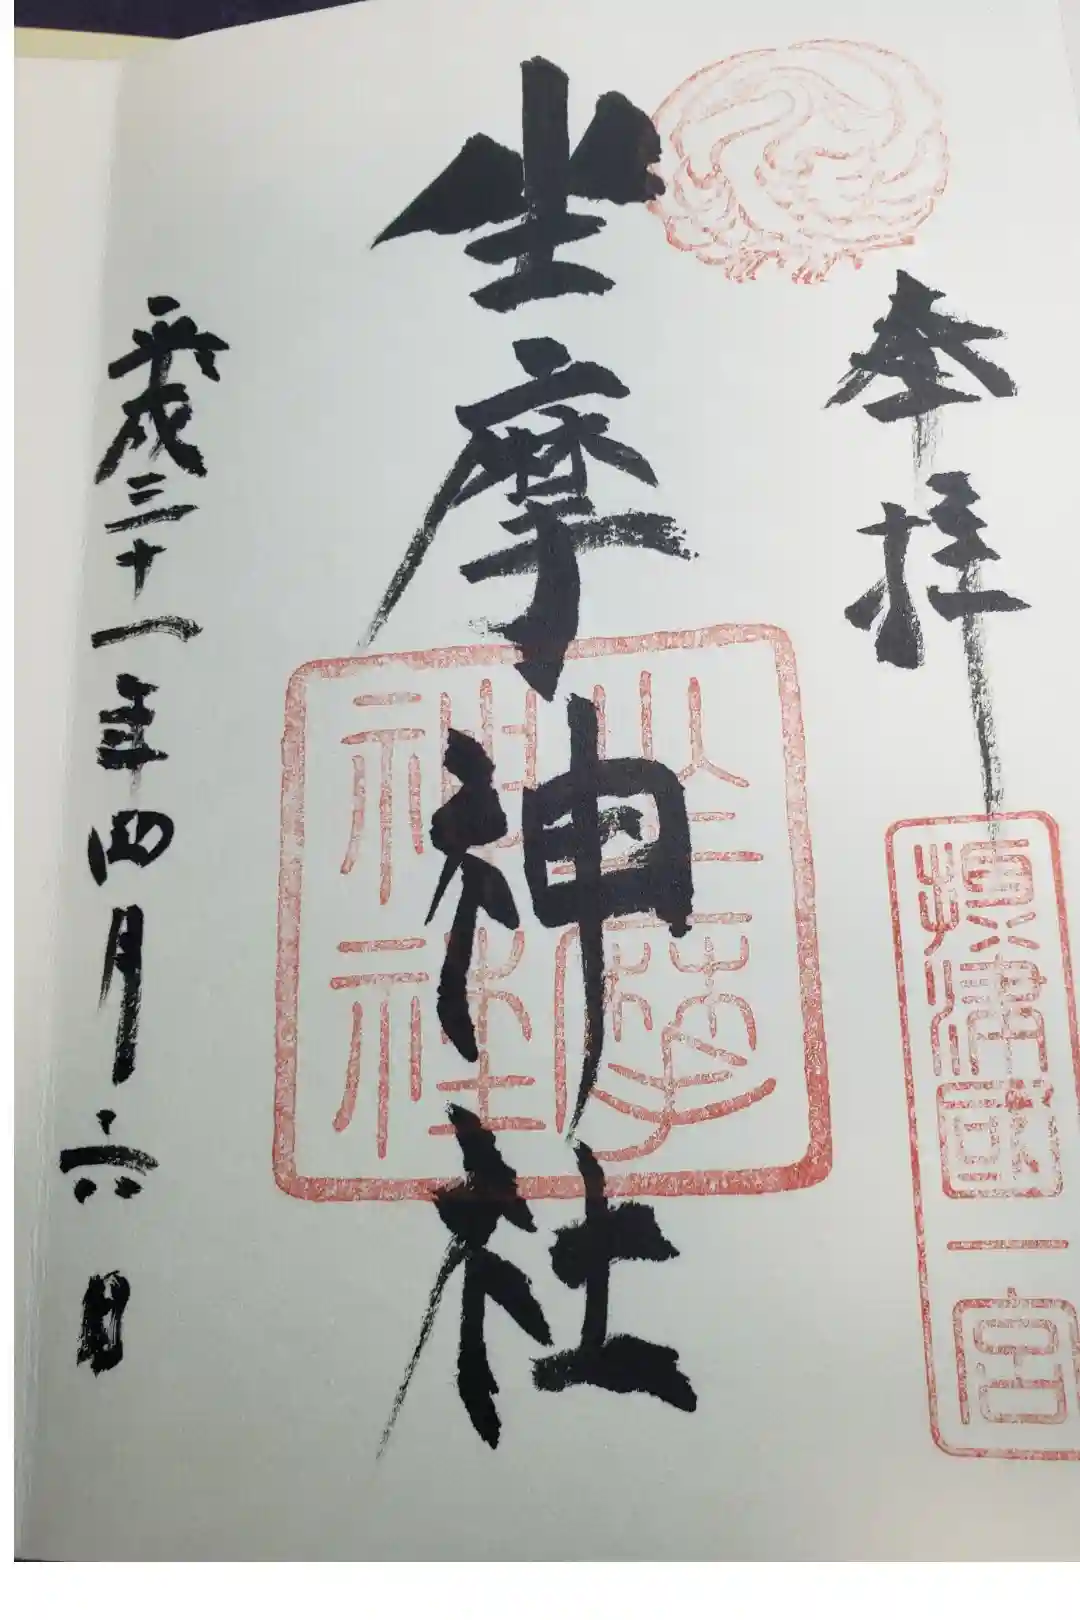 奉拝
摂津國一宮
坐摩神社
坐摩
神社
平成三十一年四月六日